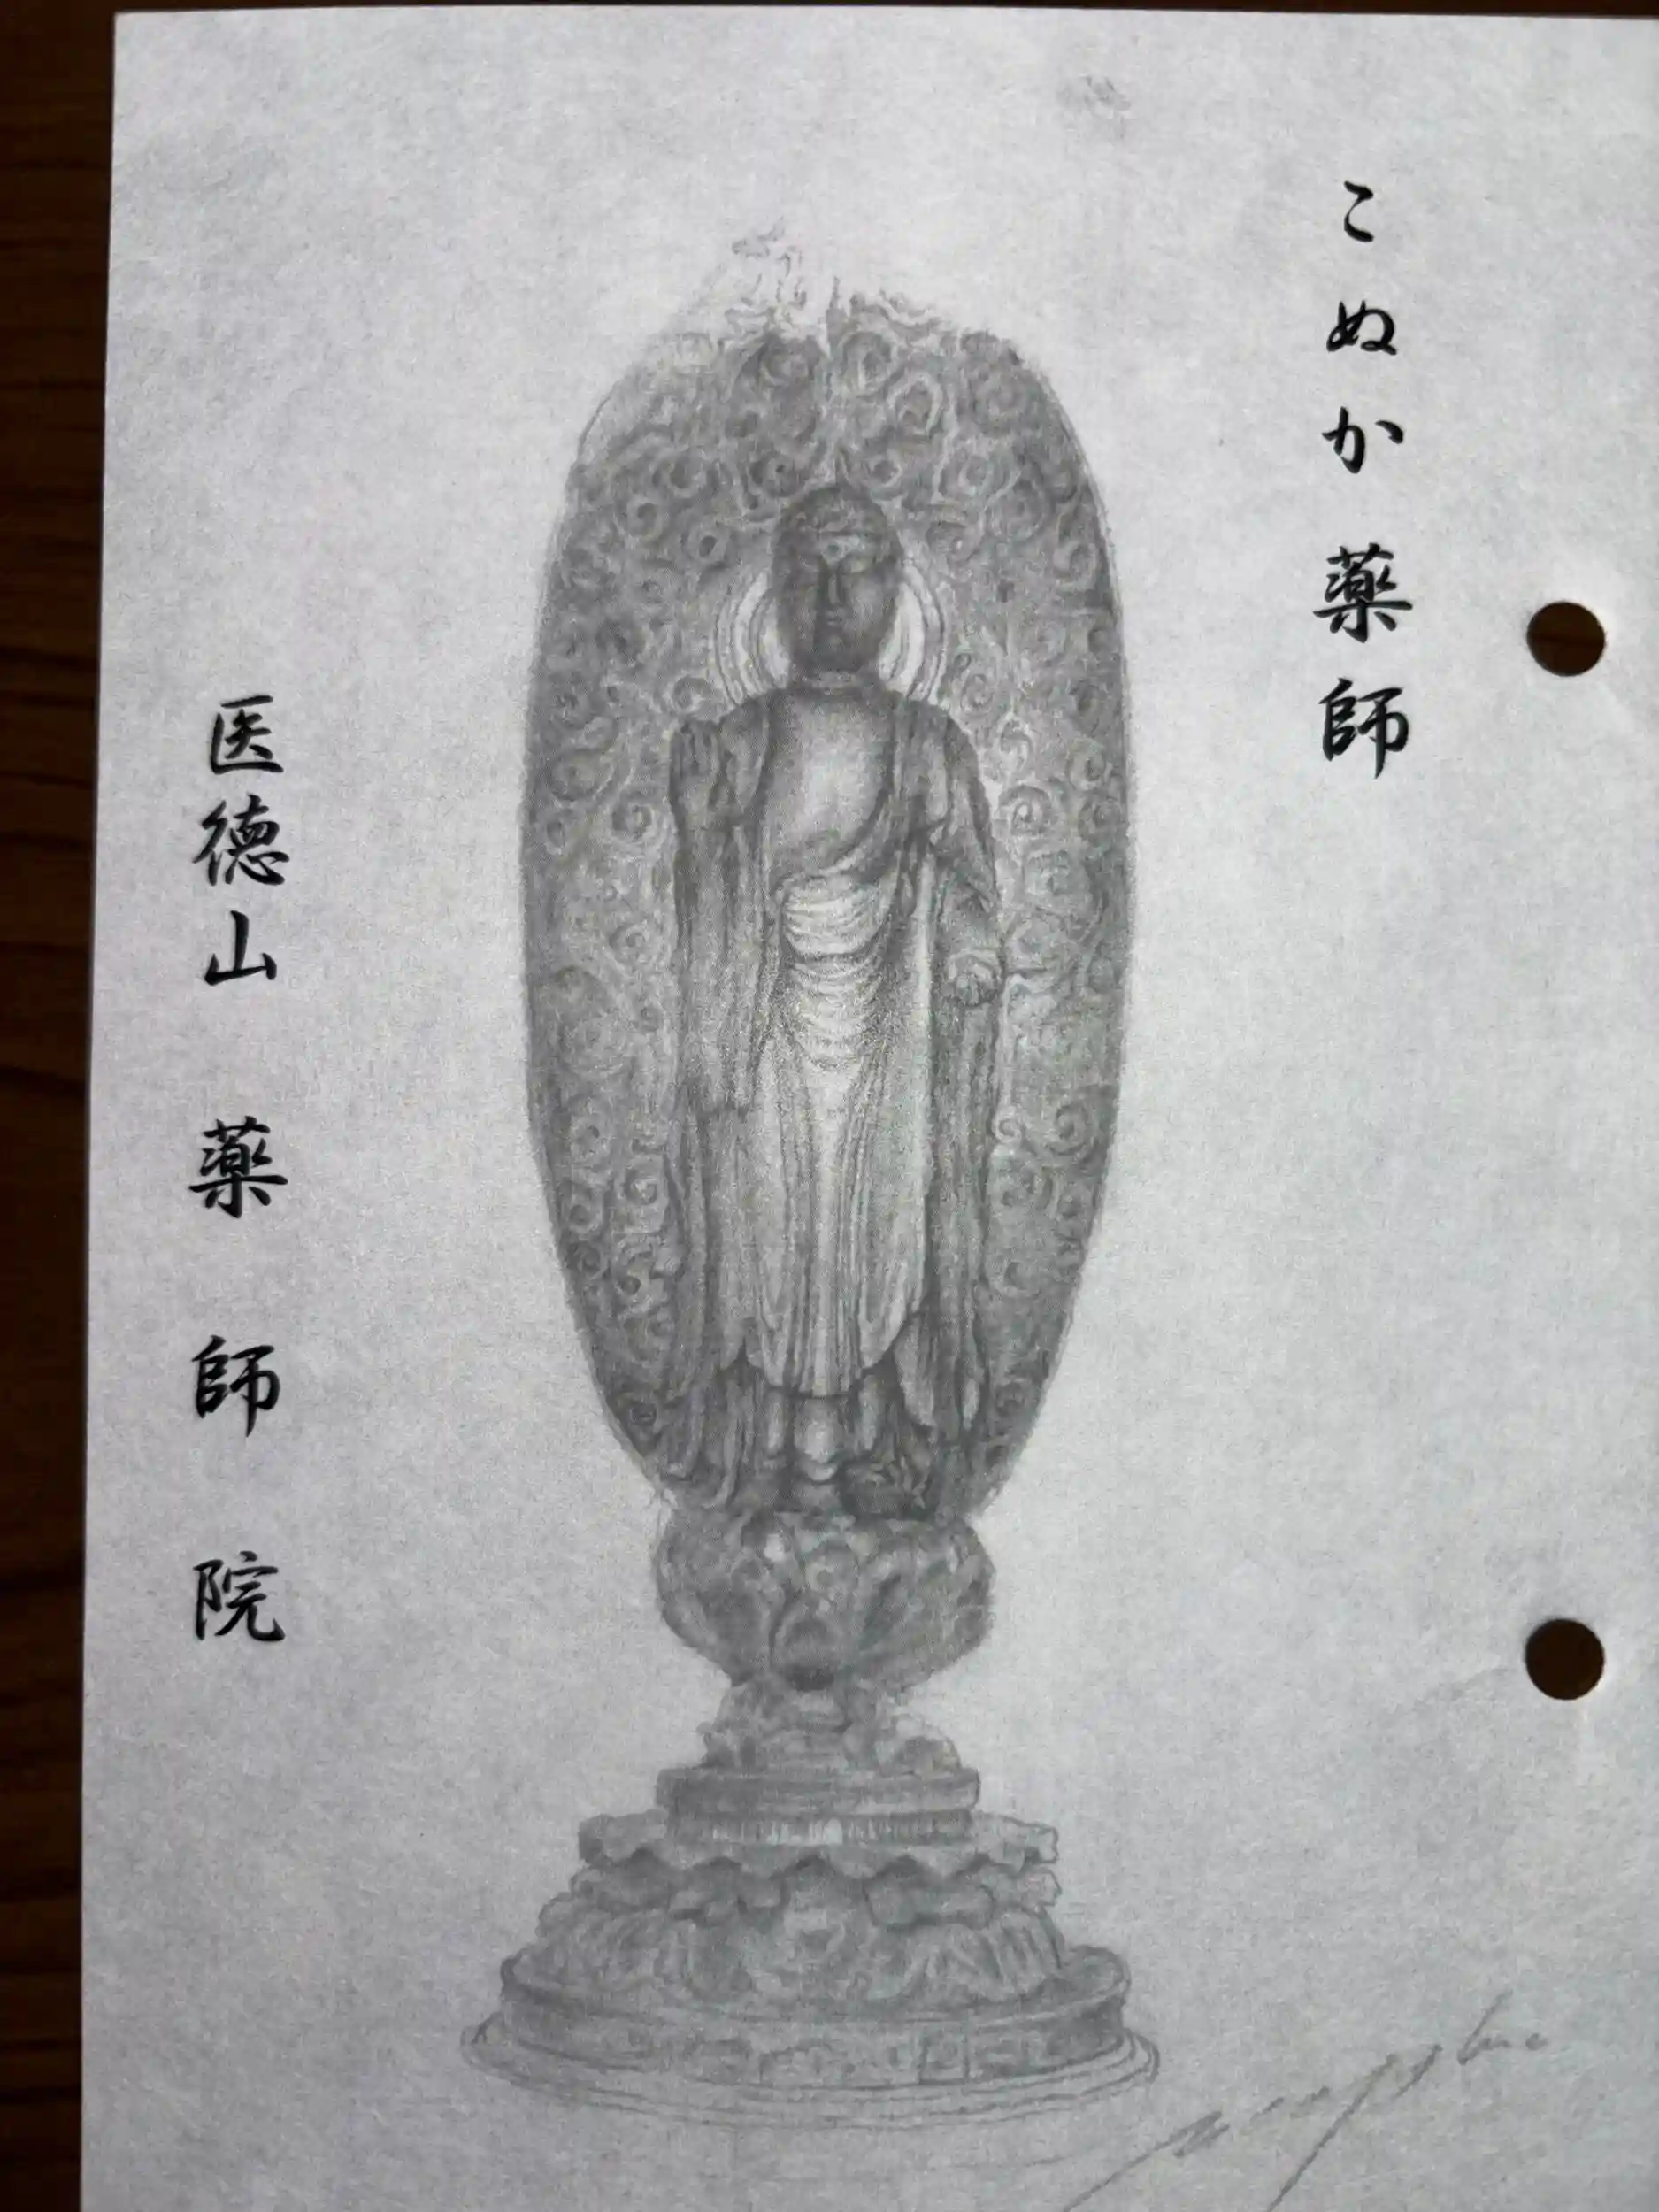 こぬか薬師
医徳山 薬師院